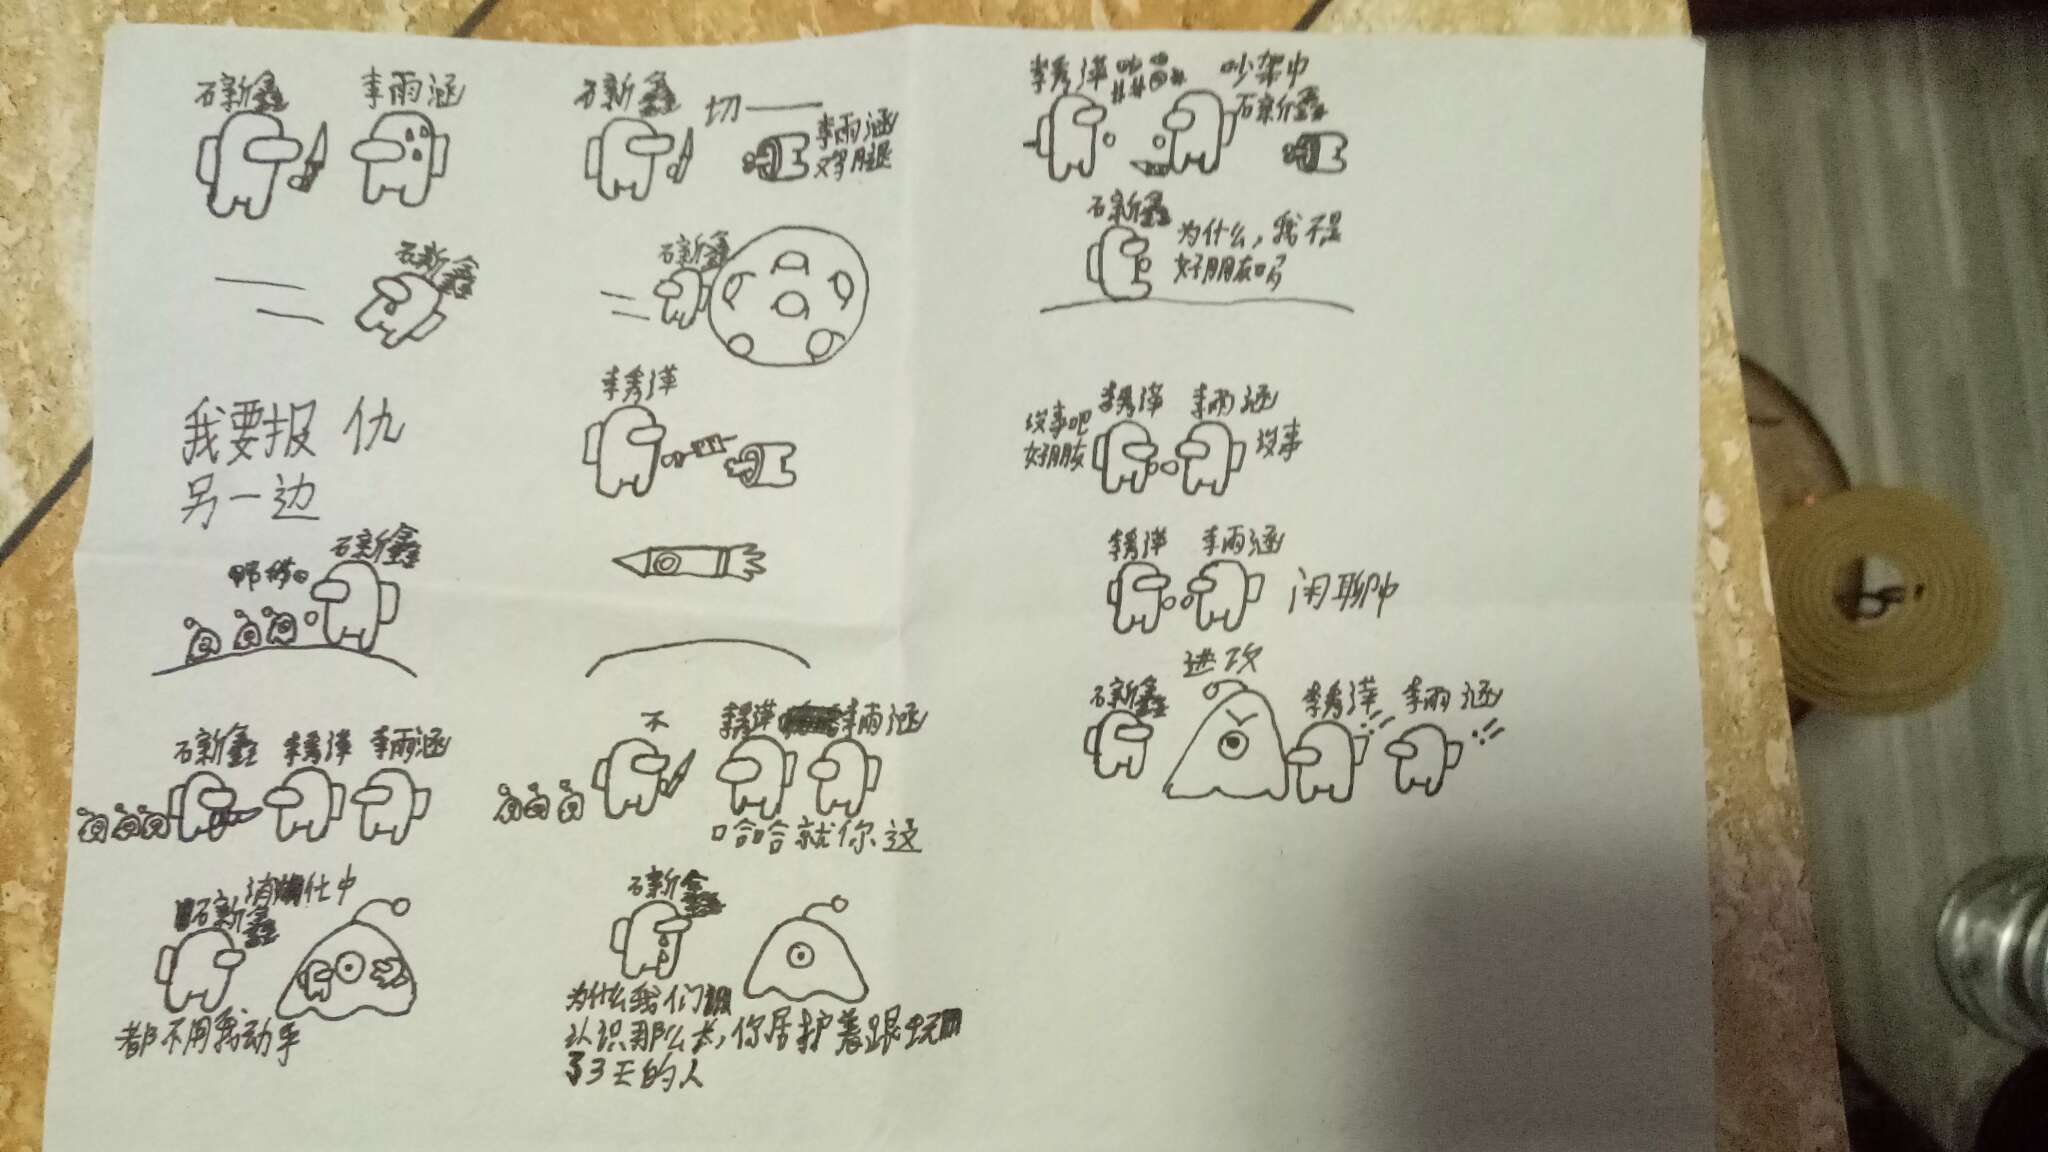 石新鑫 李雨涵
石新鑫 切一 李雨涵
鸡腿
李秀潷 吵架中
石新鑫
石新鑫
石新鑫
石新鑫
为什么，我不是
好朋友吗
我要报仇
另一边
李秀潷
李秀潷 李雨涵
没事吧
好朋友
没事
石新鑫
李秀潷 李雨涵
闲聊中
石新鑫 李秀潷 李雨涵
不
李秀潷 李雨涵
哈哈就你这
进攻
石新鑫 李秀潷 李雨涵
石新鑫 消化中
都不用我动手
石新鑫
为什么我们
认识那么长，你居护着跟玩
了3天的人